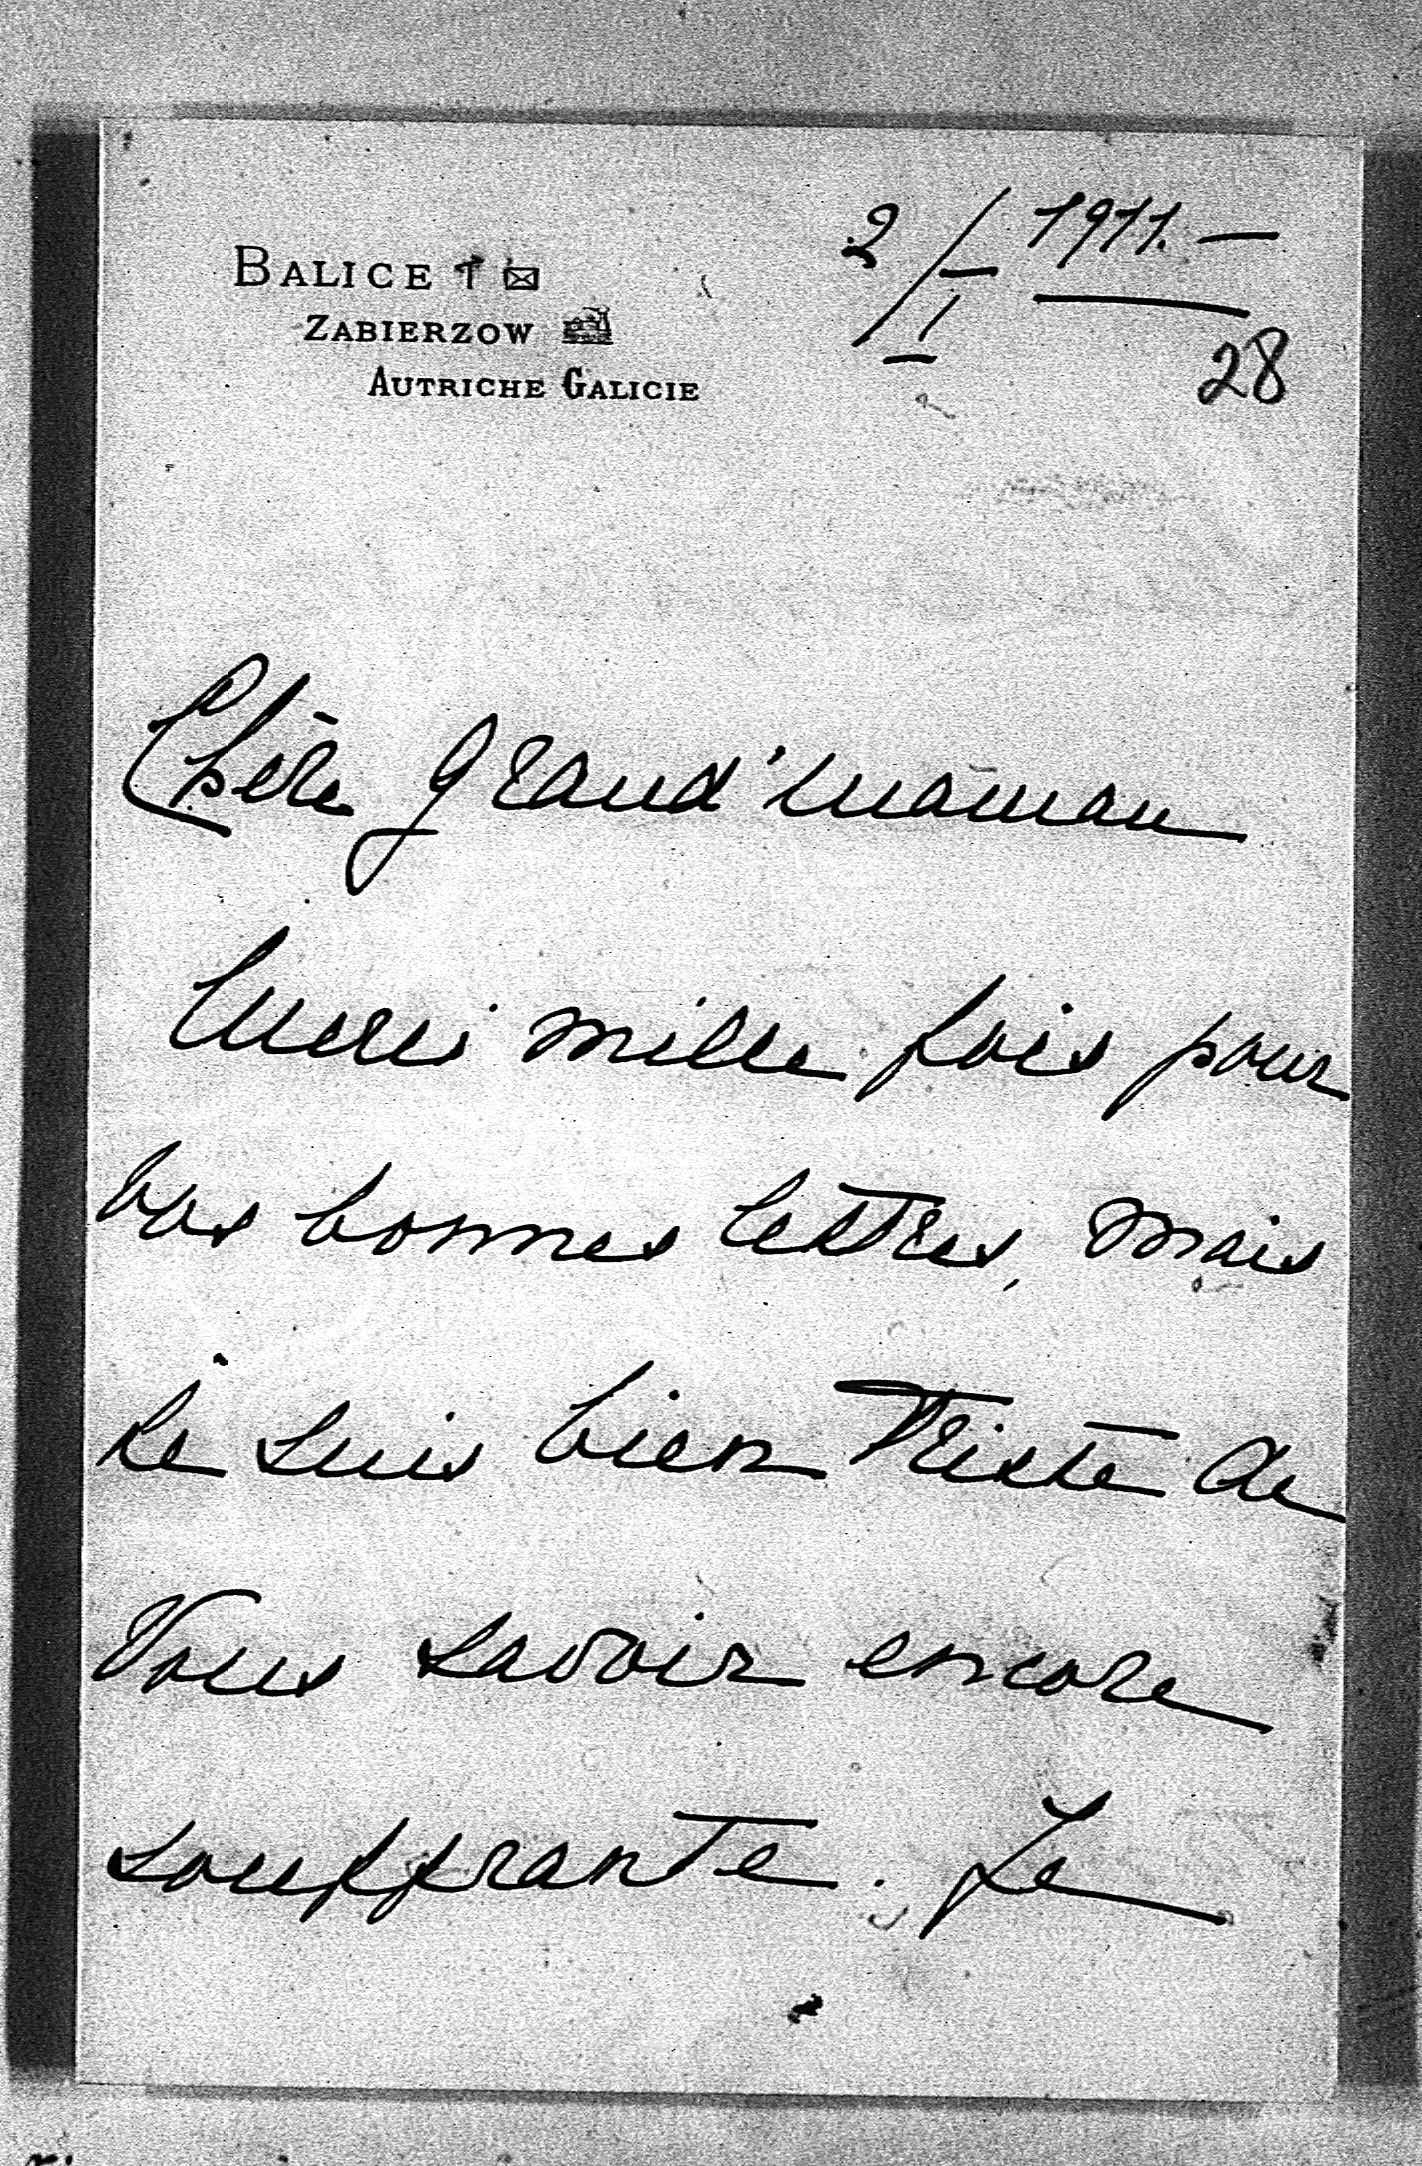 BALICE
2/I 1911. —
ZABIERZOW
AUTRICHE GALICIE
28
Chère Grand'maman
Merci mille fois pour
vos bonnes lettres, mais
je suis bien triste de
Vous savoir encore
souffrante. Je